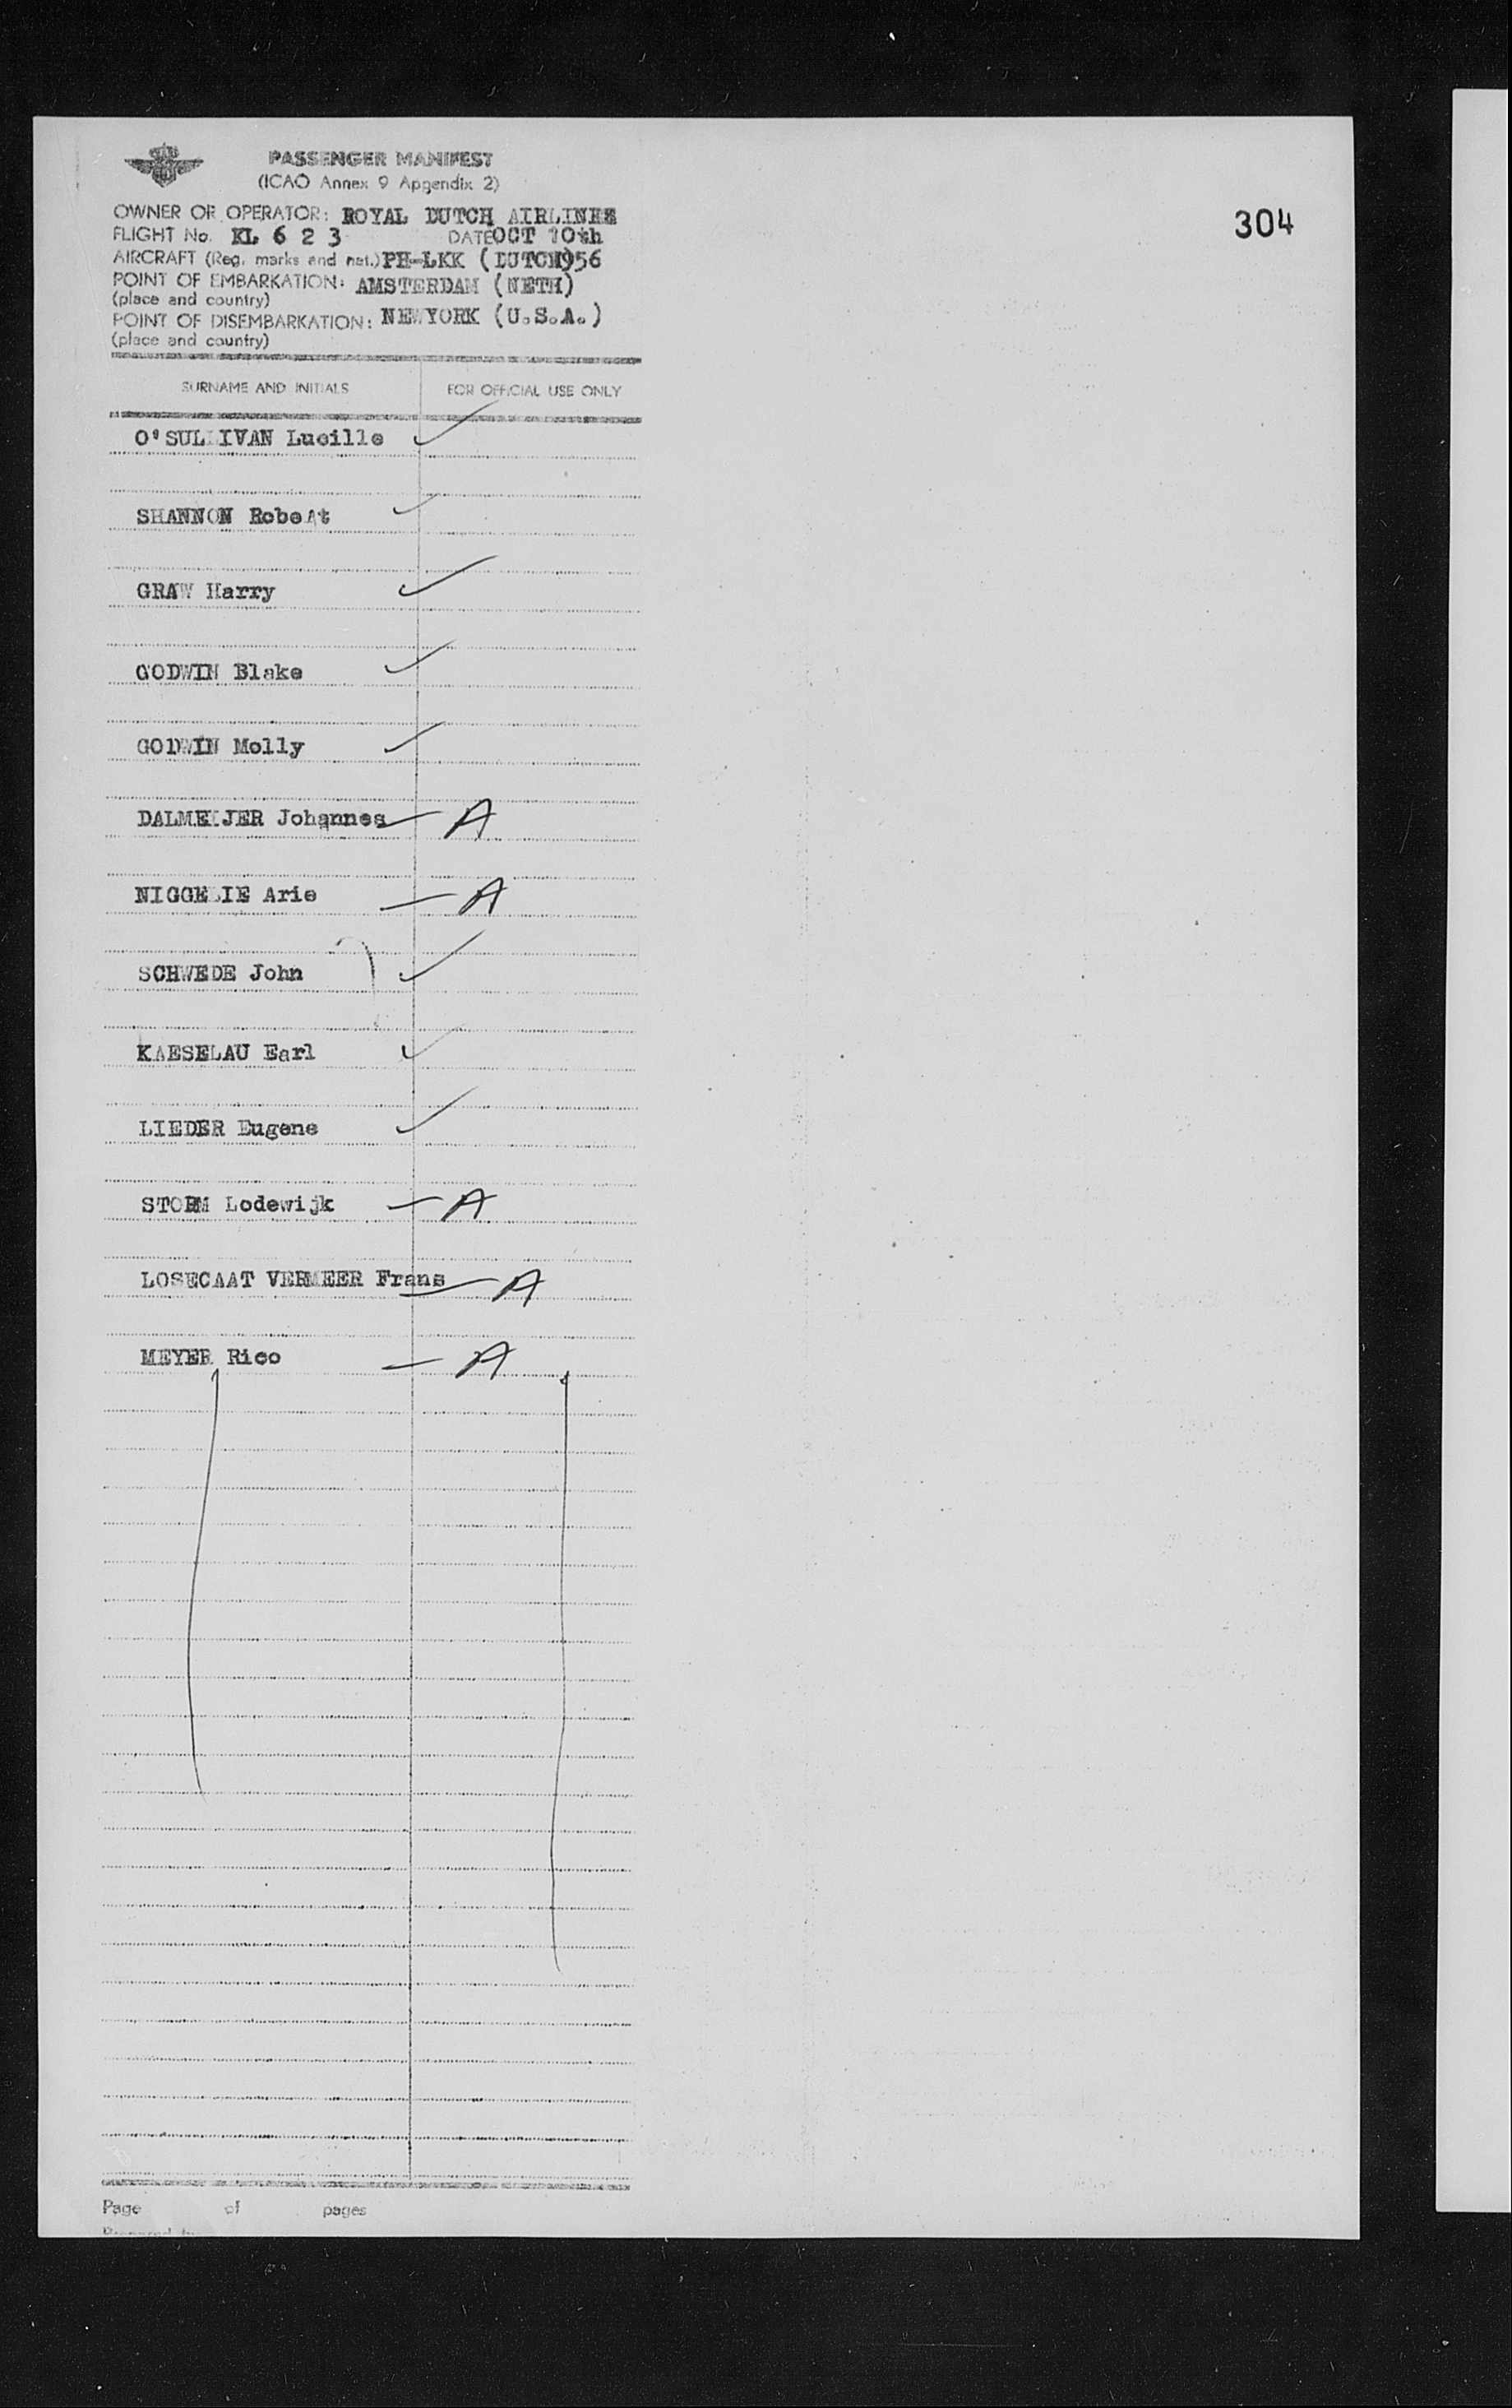 PASSENGER MANIFEST
(ICAO Annex 9 Appendix 2)
304
OWNER OR OPERATOR: ROYAL DUTCH AIRLINES
FLIGHT No. KL 6 2 3 DATE OCT 10th
AIRCRAFT (Reg. marks and nat.) PH-LKK (DUTCH) 956
POINT OF EMBARKATION: AMSTERDAM (NETH)
(place and country)
POINT OF DISEMBARKATION: NEWYORK (U.S.A.)
(place and country)
SURNAME AND INITIALS FOR OFFICIAL USE ONLY
O'SULLIVAN Lucille
SHANNON Robert
GRAW Harry
GODWIN Blake
GODWIN Molly
DALMEIJER Johannes — A
NIGGELIE Arie — A
SCHWEDE John
KAESELAU Earl
LIEDER Eugene
STORM Lodewijk — A
LOSECAAT VERMEER Frans — A
MEYER Rico — A
Page of pages